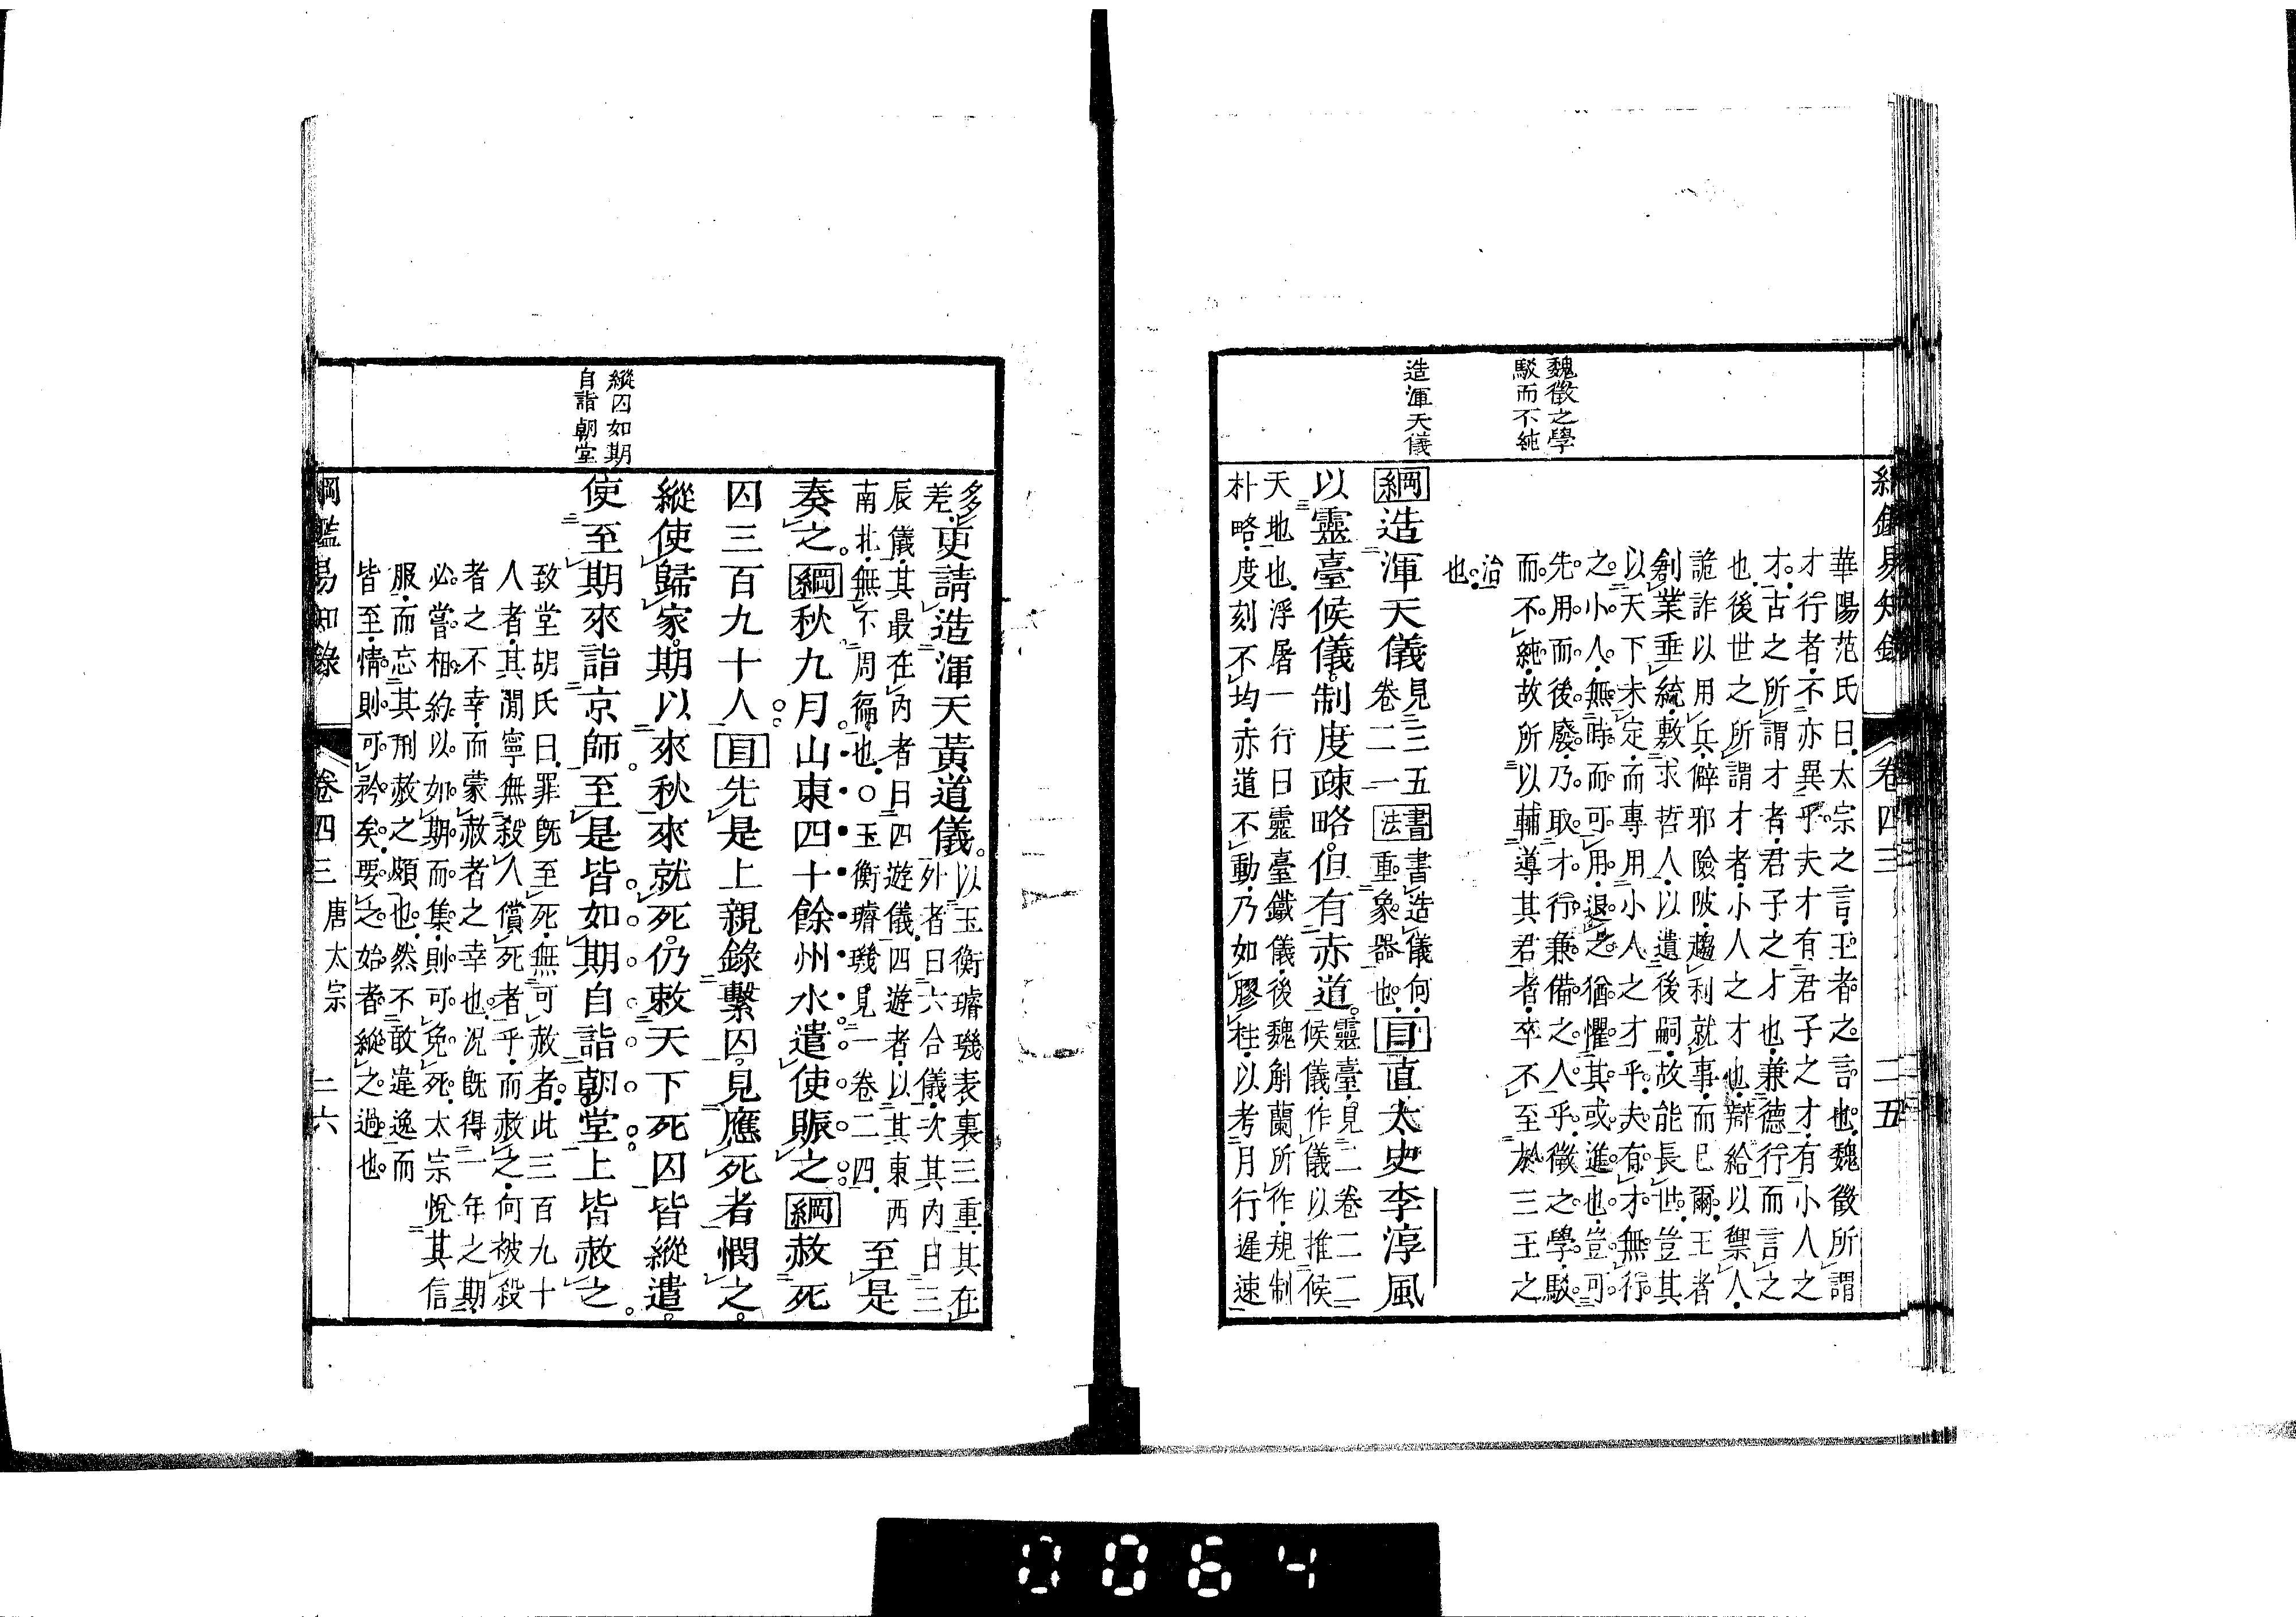 綱鑑易知錄 卷四三 二五
魏徵之學
駁而不純
造渾天儀
華陽范氏曰太宗之言王者之言也魏徵所謂
才行者不亦異乎夫才有君子之才有小人之
才古之所謂才者君子之才也兼德行而言之
也後世之所謂才者小人之才也辯給以禦人
詭詐以用兵僻邪險陂趨利就事而已爾王者
創業垂統敷求哲人以遺後嗣故能長世豈其
以天下未定而專用小人之才乎夫有才無行
之小人無時而可用退之猶懼其或進也豈可
先用而後廢乃取才行兼備之人乎徵之學駁
而不純故所以輔導其君者卒不至於三王之
治
也
綱造渾天儀見三五卷二一書法書造儀何重象器也目直太史李淳風
以靈臺候儀制度疎略但有赤道靈臺見二卷二二候儀作儀以推候
天地也浮屠一行曰靈臺鐵儀後魏斛蘭所作規制
朴略度刻不均赤道不動乃如膠柱以考月行遲速
多差更請造渾天黃道儀以玉衡璿璣表裏三重其在外者曰六合儀次其內曰三
辰儀其最在內者曰四遊儀四遊者以其東西南北無不周徧也○玉衡璿璣見一卷二四至是
奏之綱秋九月山東四十餘州水遣使賑之綱赦死
囚三百九十人目先是上親錄繫囚見應死者憫之
縱使歸家期以來秋來就死仍敕天下死囚皆縱遣
使至期來詣京師至是皆如期自詣朝堂上皆赦之
縱囚如期
自詣朝堂
致堂胡氏曰罪既至死無可赦者此三百九十
人者其閒寧無殺人償死者乎而赦之何被殺
者之不幸而蒙赦者之幸也況既得一年之期
必嘗相約以如期而集則可免死太宗悅其信
服而忘其刑赦之頗也然不敢違逸而
皆至情則可矜矣要之始者縱之過也
綱鑑易知錄 卷四三 唐太宗 二六
0064